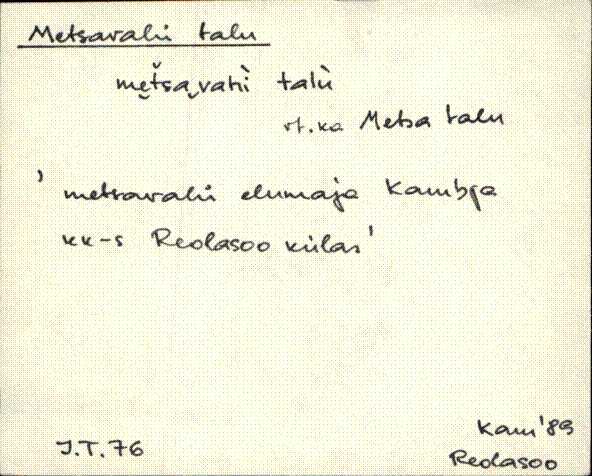 Metsavahi talu
me̮ťsa‿vahì talù
vt. ka Metsa talu
' metsavahi elumaja Kambja
kk-s Reolasoo külas'
J.T. 76
Kam '89
Reolasoo